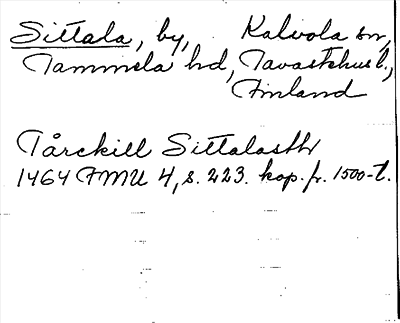 Sittala, by, Kalvola sn,
Tammela hd, Tavastehus l.,
Finland
Tårckill Sittalasthr
1464 FMU 4, s. 223. kop. fr. 1500-t.